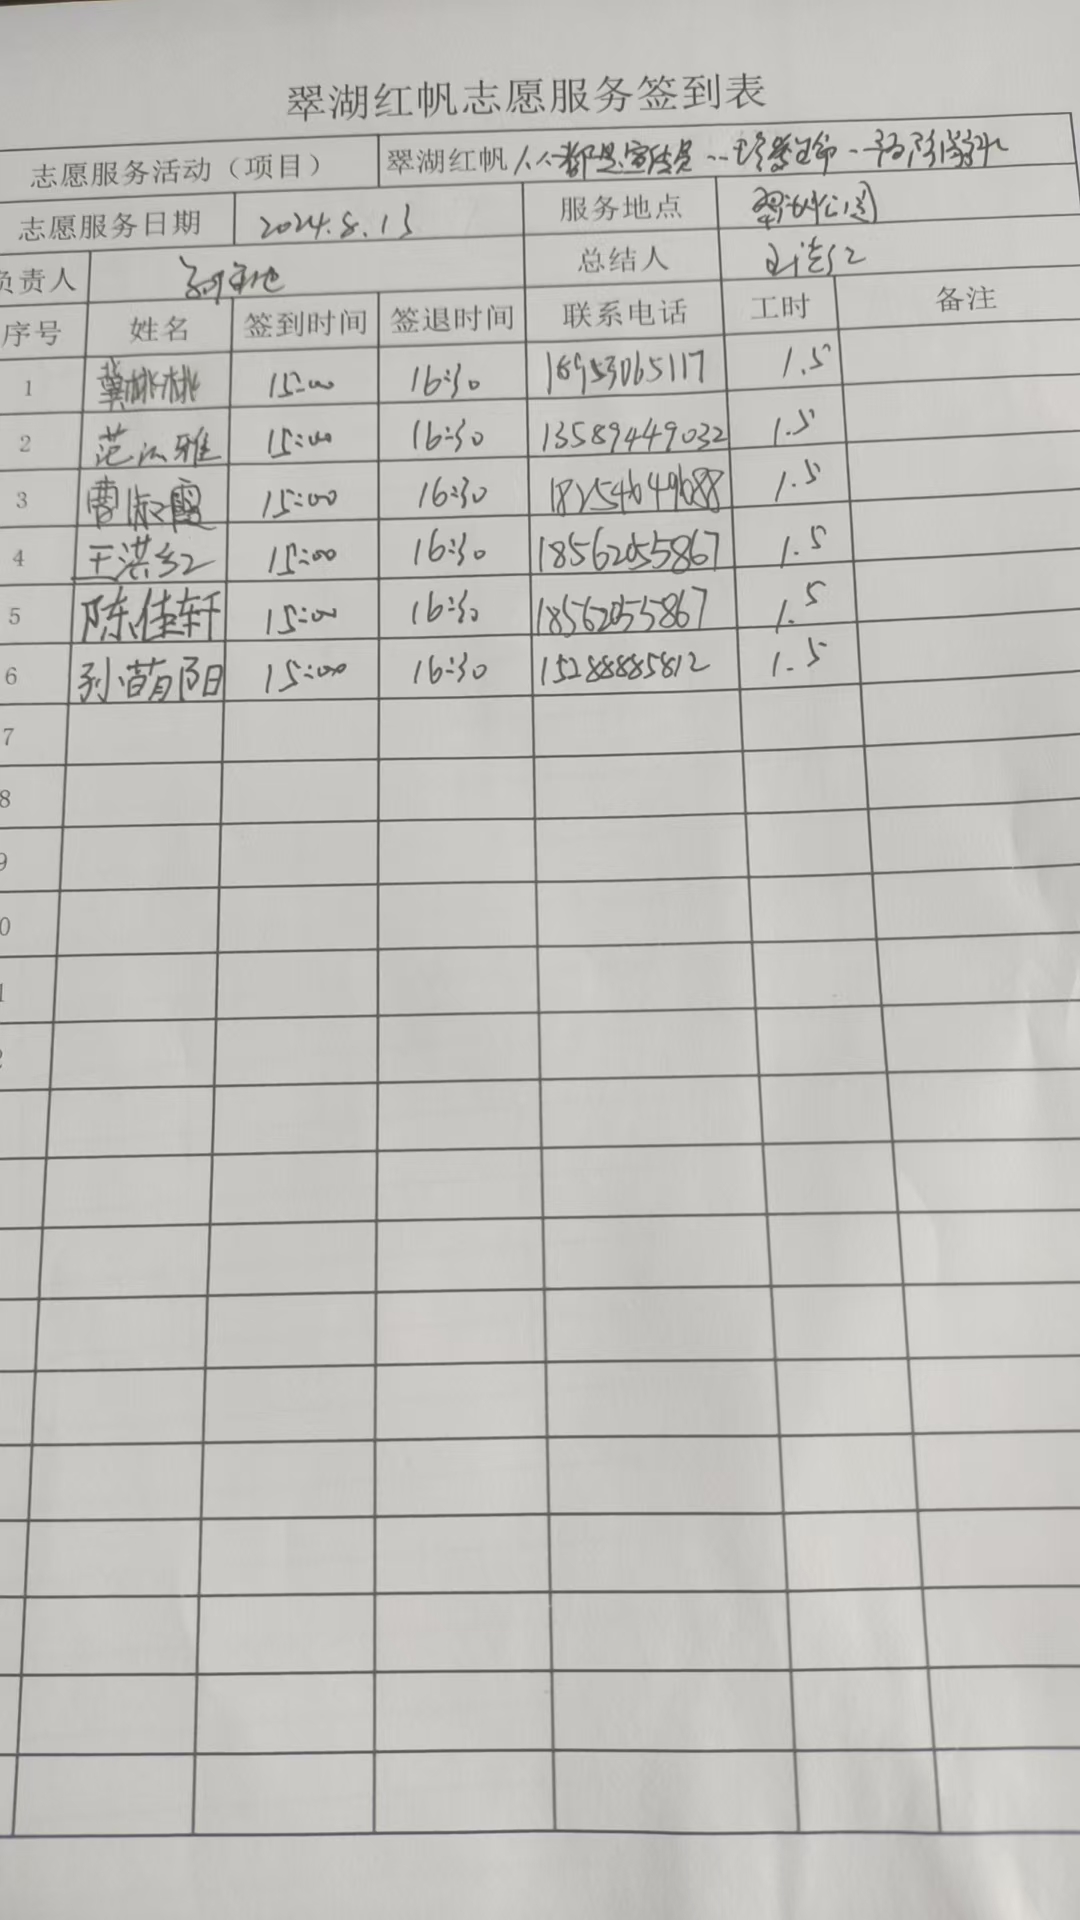 翠湖红帆志愿服务签到表
志愿服务活动（项目） 翠湖红帆人人都是宣传员--珍爱生命--预防溺水
志愿服务日期 2024.8.13 服务地点 翠湖公园
负责人 总结人 王洪红
序号 姓名 签到时间 签退时间 联系电话 工时 备注
1 冀桃桃 15:00 16:30 18953065117 1.5
2 范 雅 15:00 16:30 13589449032 1.5
3 曹淑霞 15:00 16:30 1.5
4 王洪红 15:00 16:30 18562055867 1.5
5 陈佳轩 15:00 16:30 18562055867 1.5
6 孙萌阳 15:00 16:30 15288885812 1.5
7
8
9
0
1
2